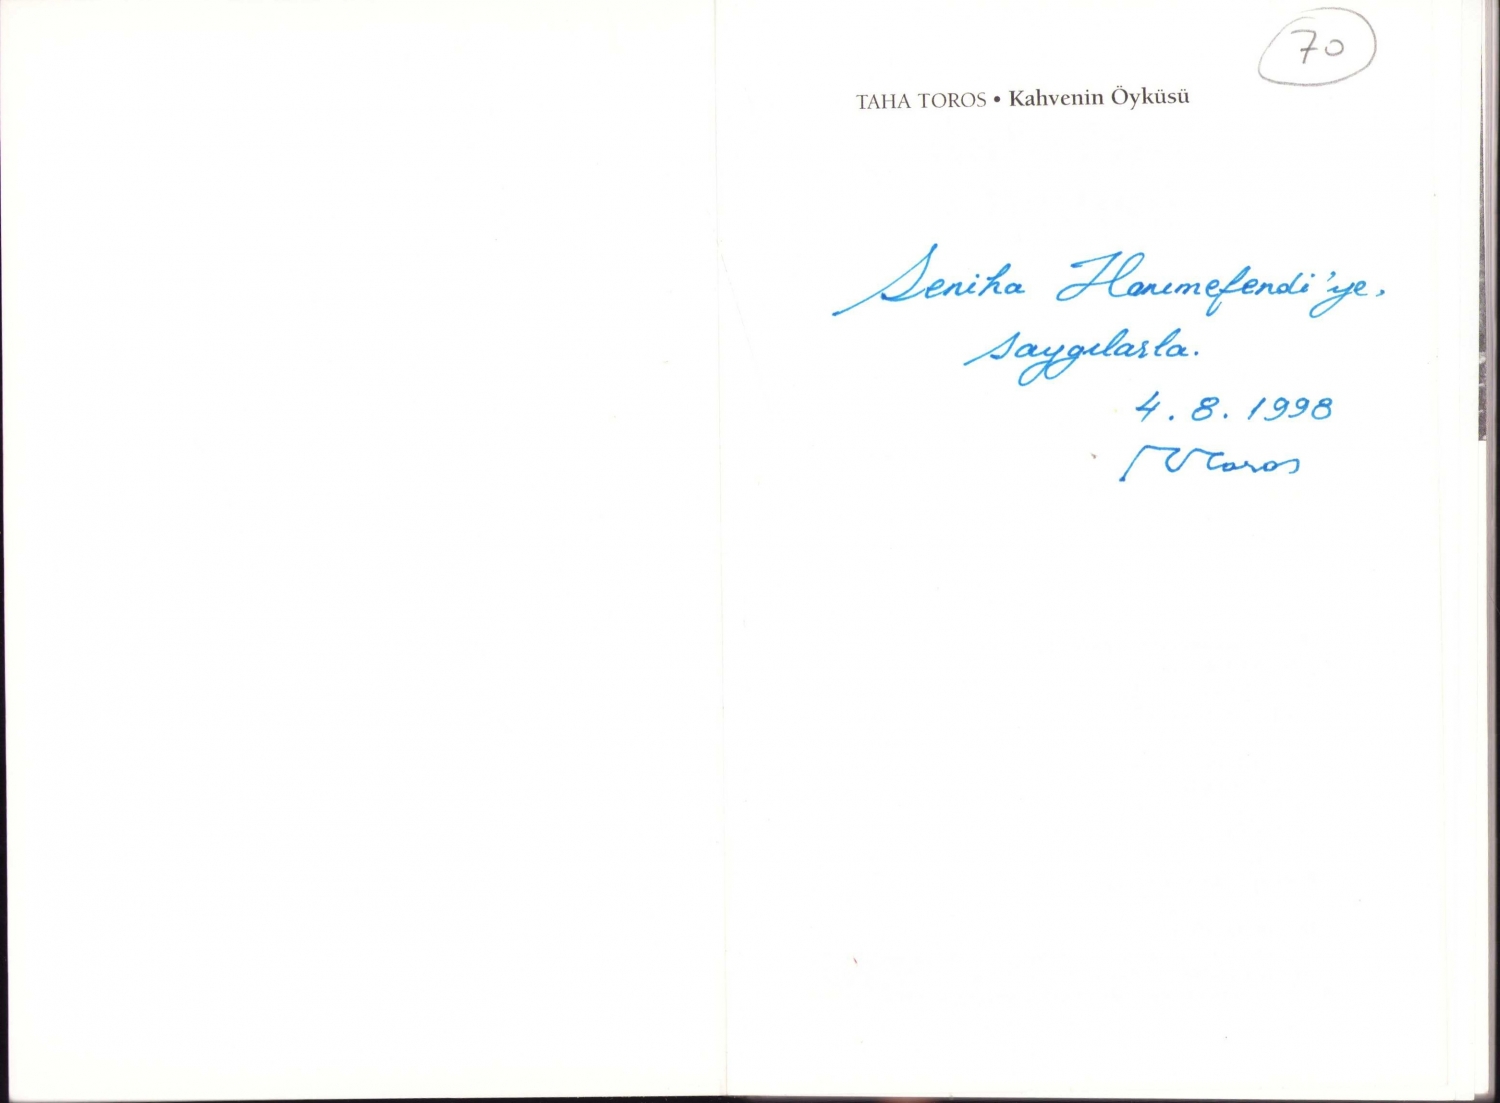 70
TAHA TOROS • Kahvenin Öyküsü
Seniha Hanımefendi'ye,
saygılarla.
4.8.1998
Toros